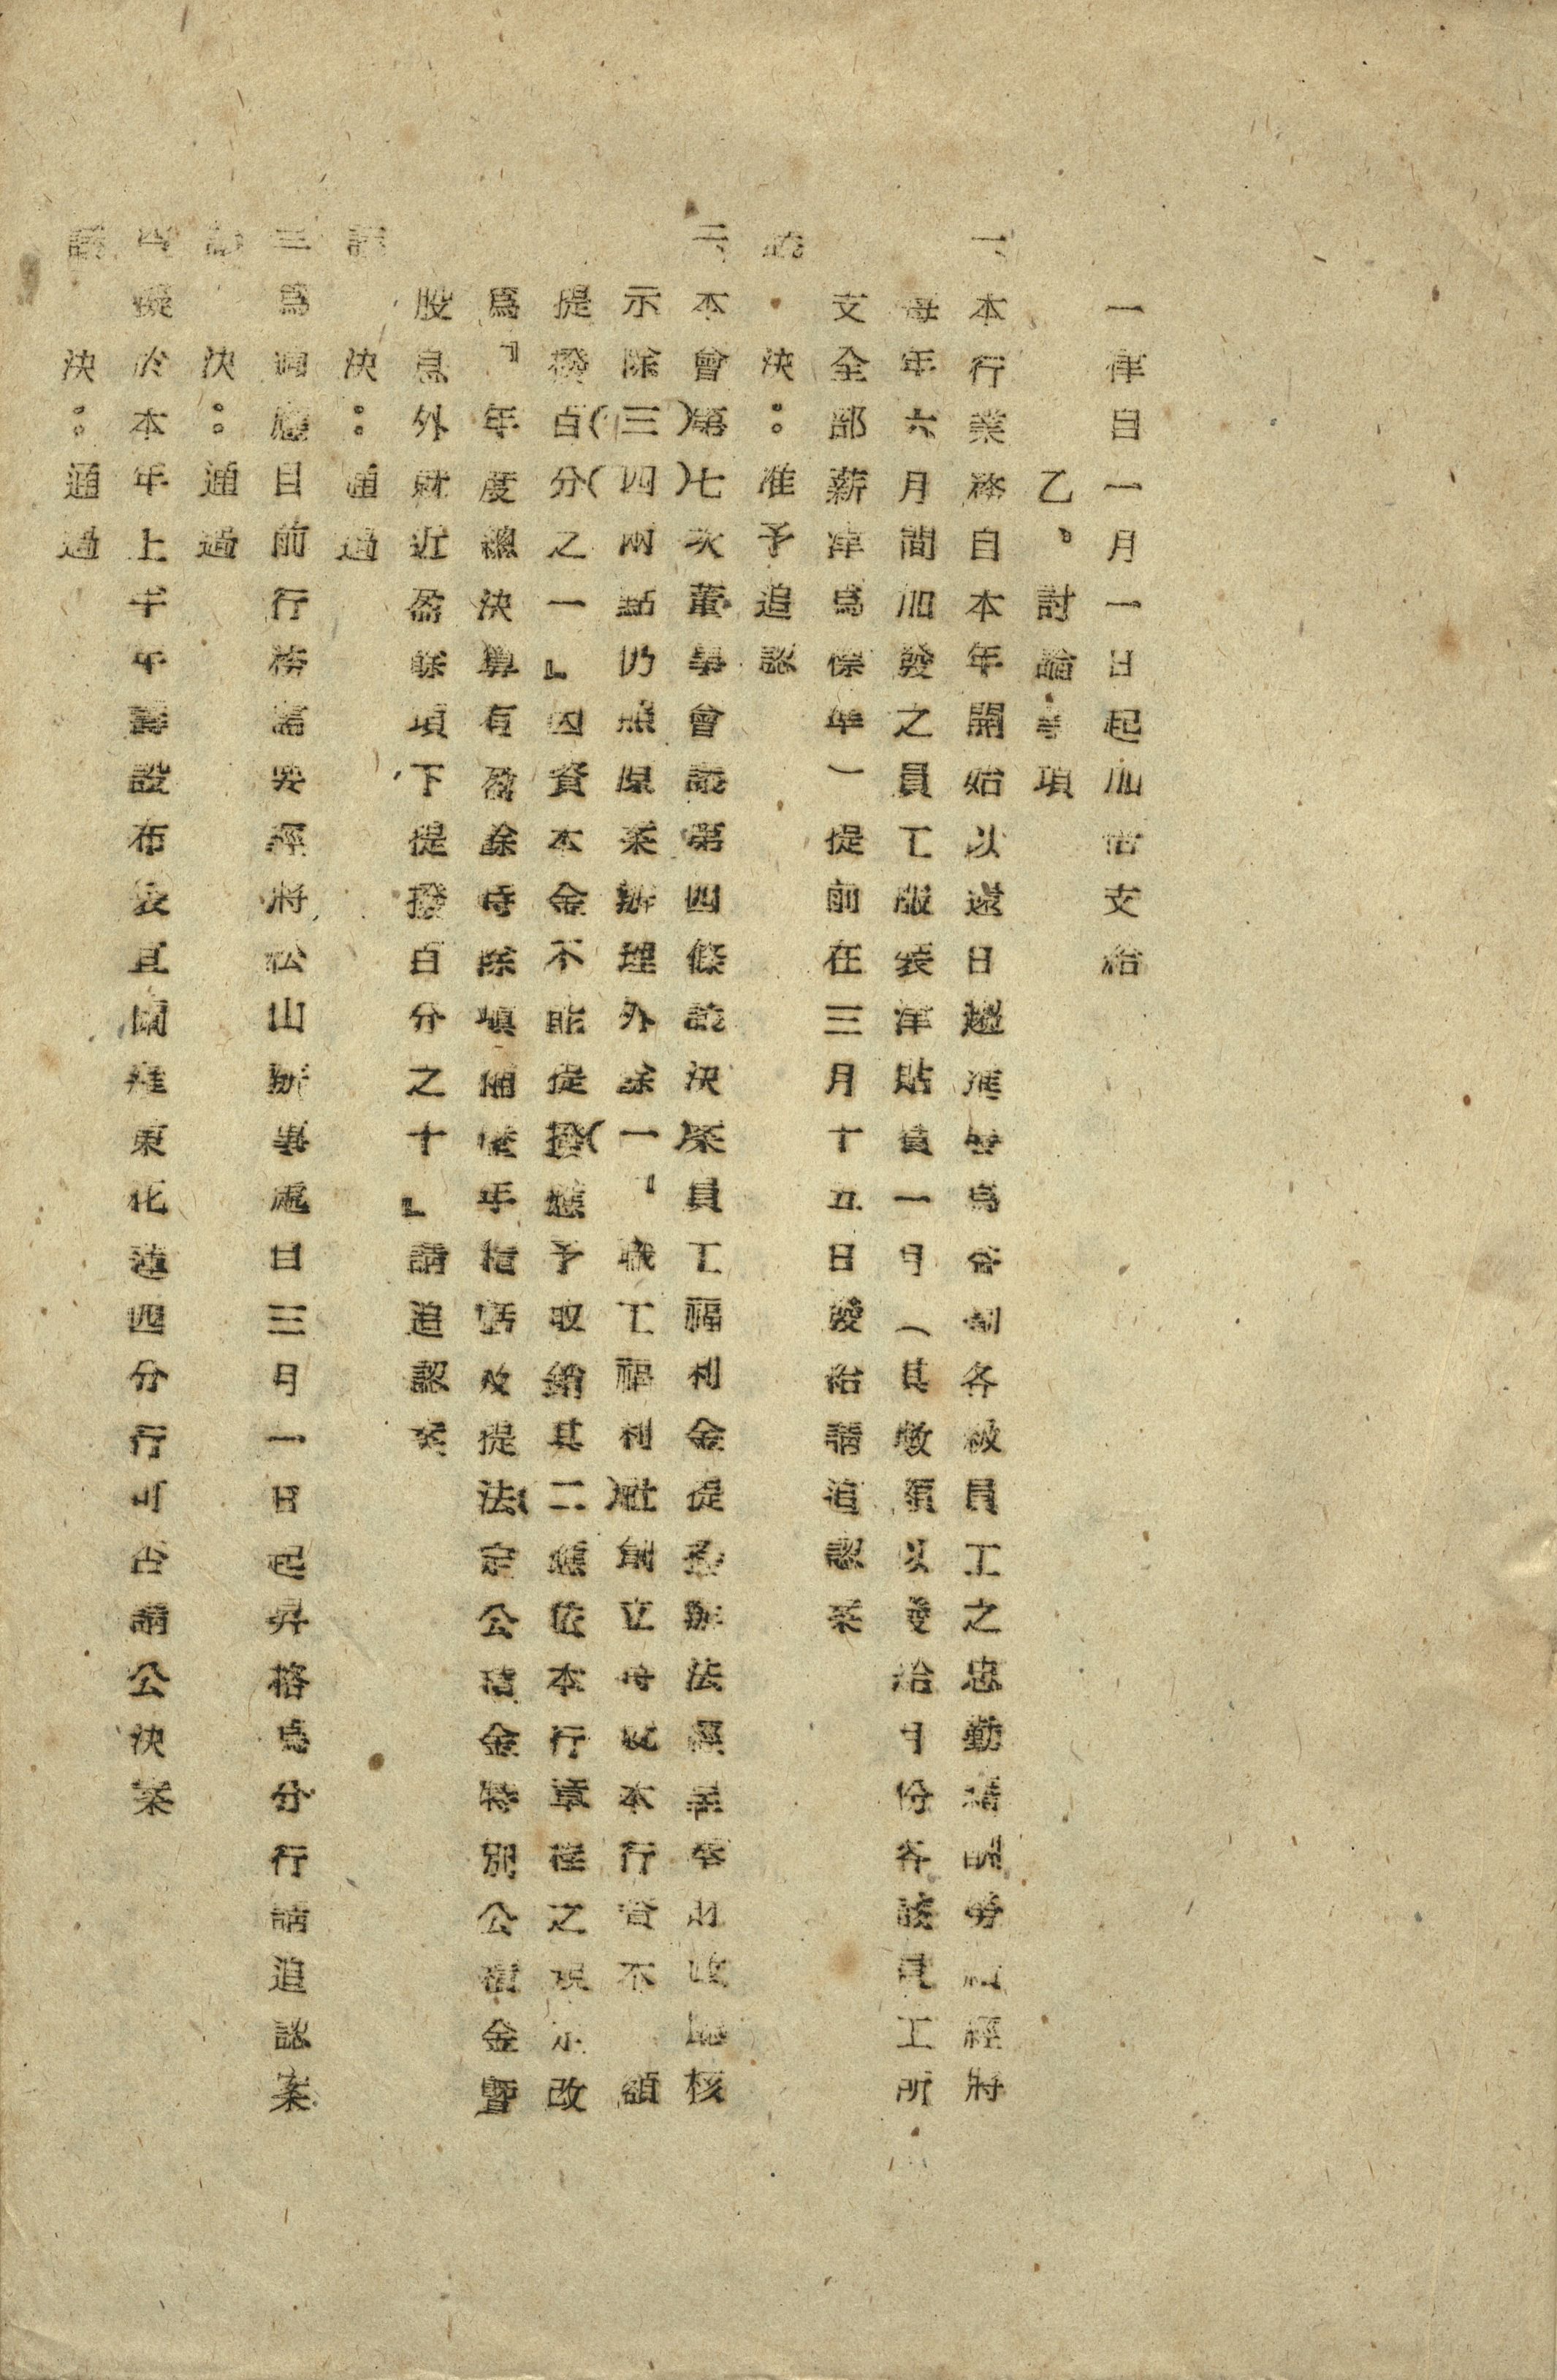 一律自一月一日起加倍支給
乙、討論事項
一、本行業務自本年開始以還日趨進步爲各級員工之忠勤請酬勞經將
每年六月間加發之員工服裝津貼員一月（其數額以發給月份各該員工所
支全部薪津爲標準）提前在三月十五日發給請追認案
議決：准予追認
二、本會第七次董事會議第四條議決案員工福利金提撥辦法經呈奉財政 核
示除（三）（四）兩點仍照原案辦理外餘（一）『職工福利社創立時就本行資本 額
提撥百分之一』因資本金不能提撥應予取銷其（二）應依本行章程之規 改
爲『年度總決算有盈餘時除填補 年 及提法定公積金特別公積金暨
股息外就近盈餘項下提撥百分之十』請追認案
議決：通過
三、爲適應目前行務需要經將松山辦事處自三月一日起昇格爲分行請追認案
議決：通過
四、擬於本年上半年籌設布袋宜蘭羅東花蓮四分行可否請公決案
議決：通過